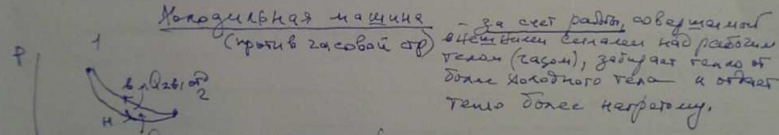 Холодильная машина
(против часовой стр)
- за счет работы, совершаемой
внешними силами над рабочим
телом (газом), забирает тепло от
более холодного тела и отдает
тепло более нагретому.
P
1
2